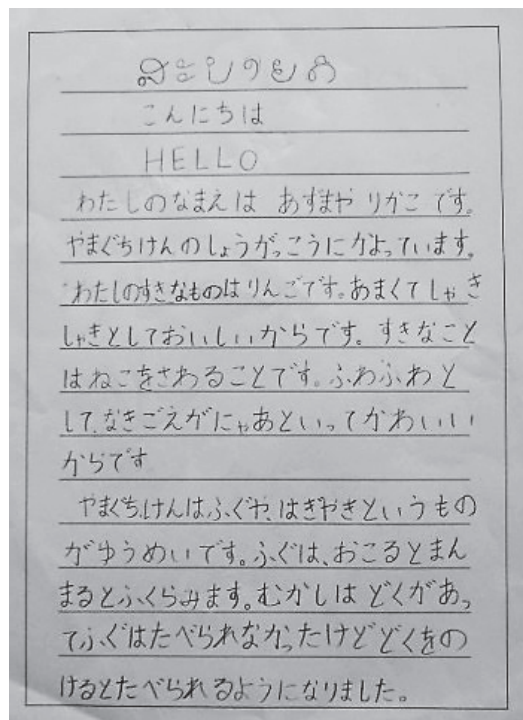 ສະບາຍດີ
こんにちは
HELLO
わたしのなまえは あずまや りかこ です。
やまぐちけんのしょうがっこうにかよっています。
わたしのすきなものはりんごです。あまくてしゃき
しゃきとしておいしいからです。すきなこと
はねこをさわることです。ふわふわと
して、なきごえがにゃあといってかわいい
からです
やまぐちけんはふぐや、はぎやきというもの
がゆうめいです。ふぐは、おこるとまん
まるとふくらみます。むかしは どくがあっ
てふぐはたべられなかったけどどくをの
けるとたべられるようになりました。